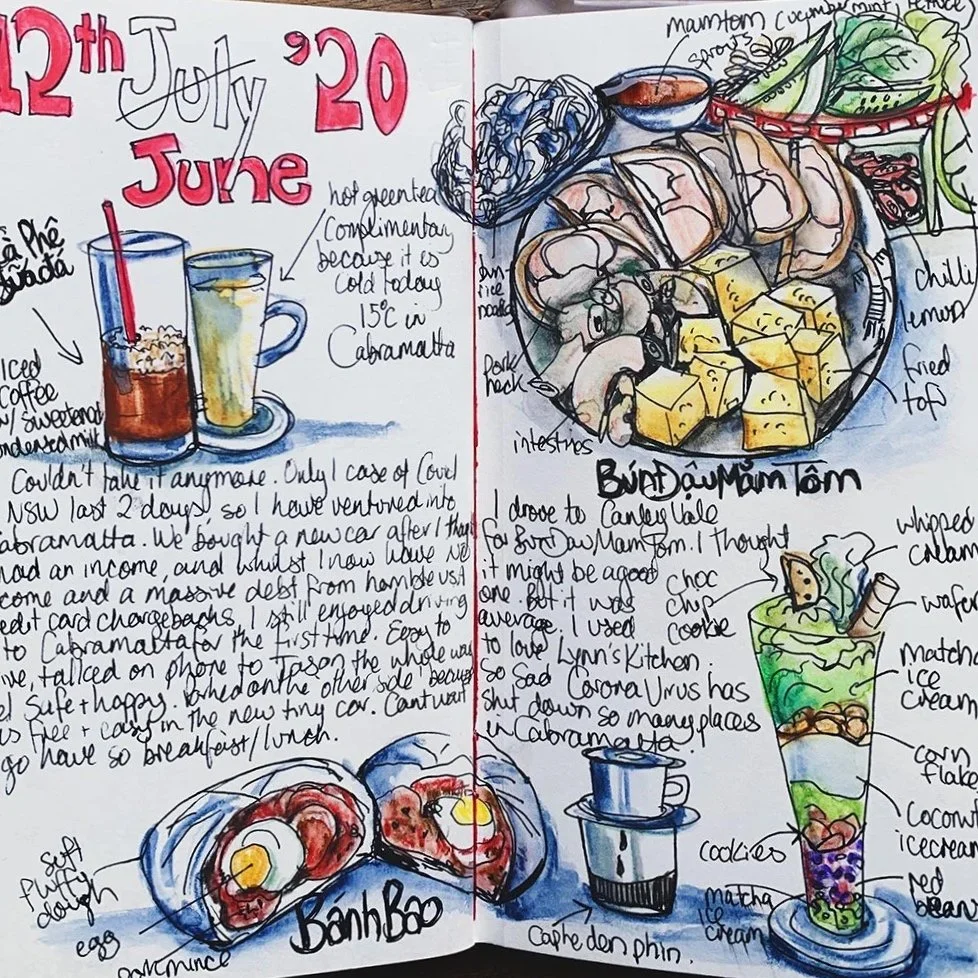 12th July '20
June
Cà Phê
Sữa đá
iced
coffee
w/ sweetened
condensed milk
hot green tea
Complimentary
because it is
cold today
15°C in
Cabramatta
Couldn't take it anymore. Only 1 case of Covid
NSW last 2 days, so I have ventured into
Cabramatta. We bought a new car after I
had an income, and whilst I now have no
income and a massive debt from
credit card chargebacks, I still enjoyed driving
to Cabramatta for the first time. Easy to
drive, talked on phone to Jason the whole way
safe + happy. Parked on the other side because
is free + easy in the new tiny car. Cant wait
go have so breakfast/lunch.
soft
fluffy
dough
egg
pork mince
Bánh Bao
mam tom
cucumber, mint, lettuce
sprouts
bun
rice
noodles
pork
neck
intestines
chilli
lemon
fried
tofu
Bún Đậu Mắm Tôm
I drove to Canley Vale
for Bun Dau Mam Tom. I thought
it might be a good
one. But it was
average. I used
to love Lynn's Kitchen.
So sad Corona Virus has
shut down so many places
in Cabramatta.
choc
chip
cookie
whipped
cream
wafer
Matcha
ice
cream
corn
flake
Coconut
icecream
red
bean
cookies
matcha
ice
cream
Caphe den phin.